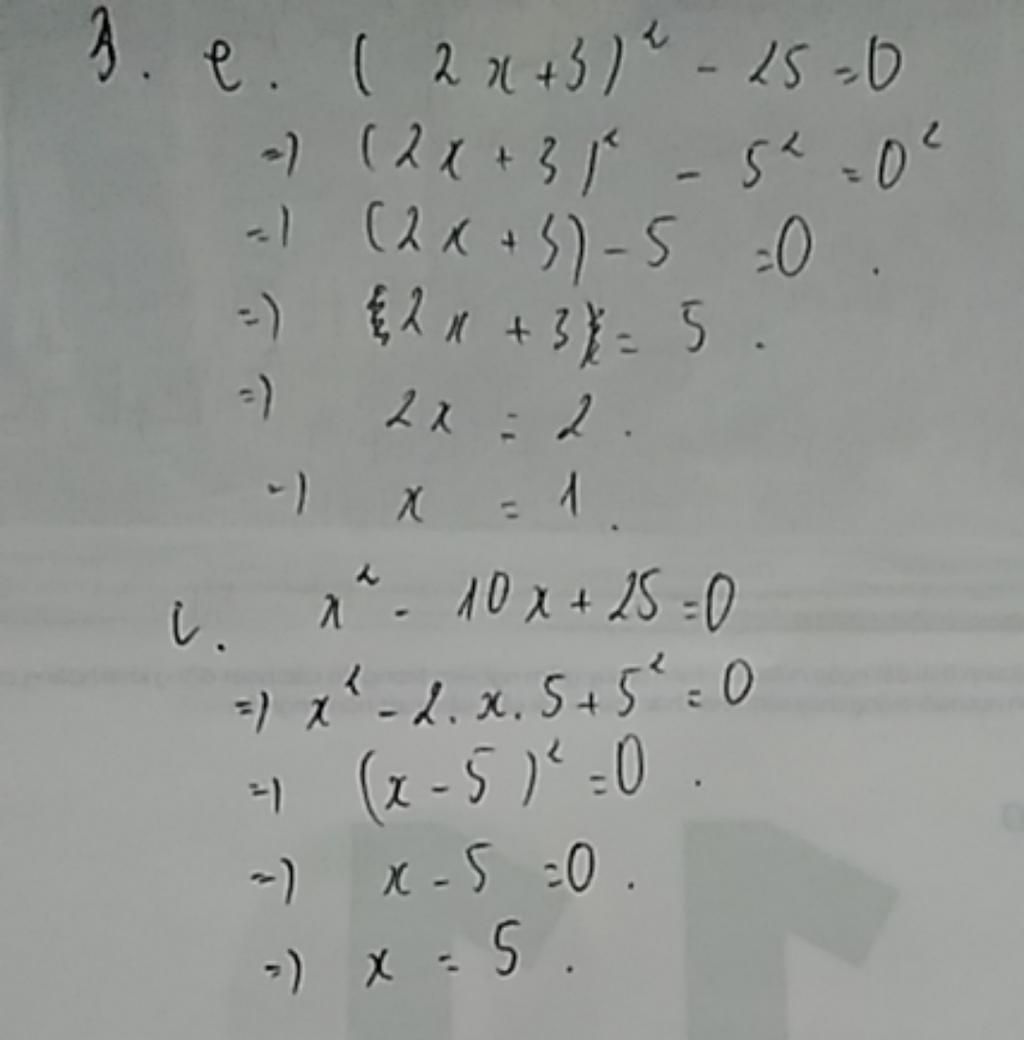 3. e. (2x+3)² - 25 = 0
=> (2x + 3)² - 5² = 0²
=> (2x + 3) - 5 = 0.
=> 2x + 3 = 5.
=> 2x = 2.
=> x = 1.
i. x² - 10x + 25 = 0
=> x² - 2.x.5 + 5² = 0
=> (x - 5)² = 0.
=> x - 5 = 0.
=> x = 5.